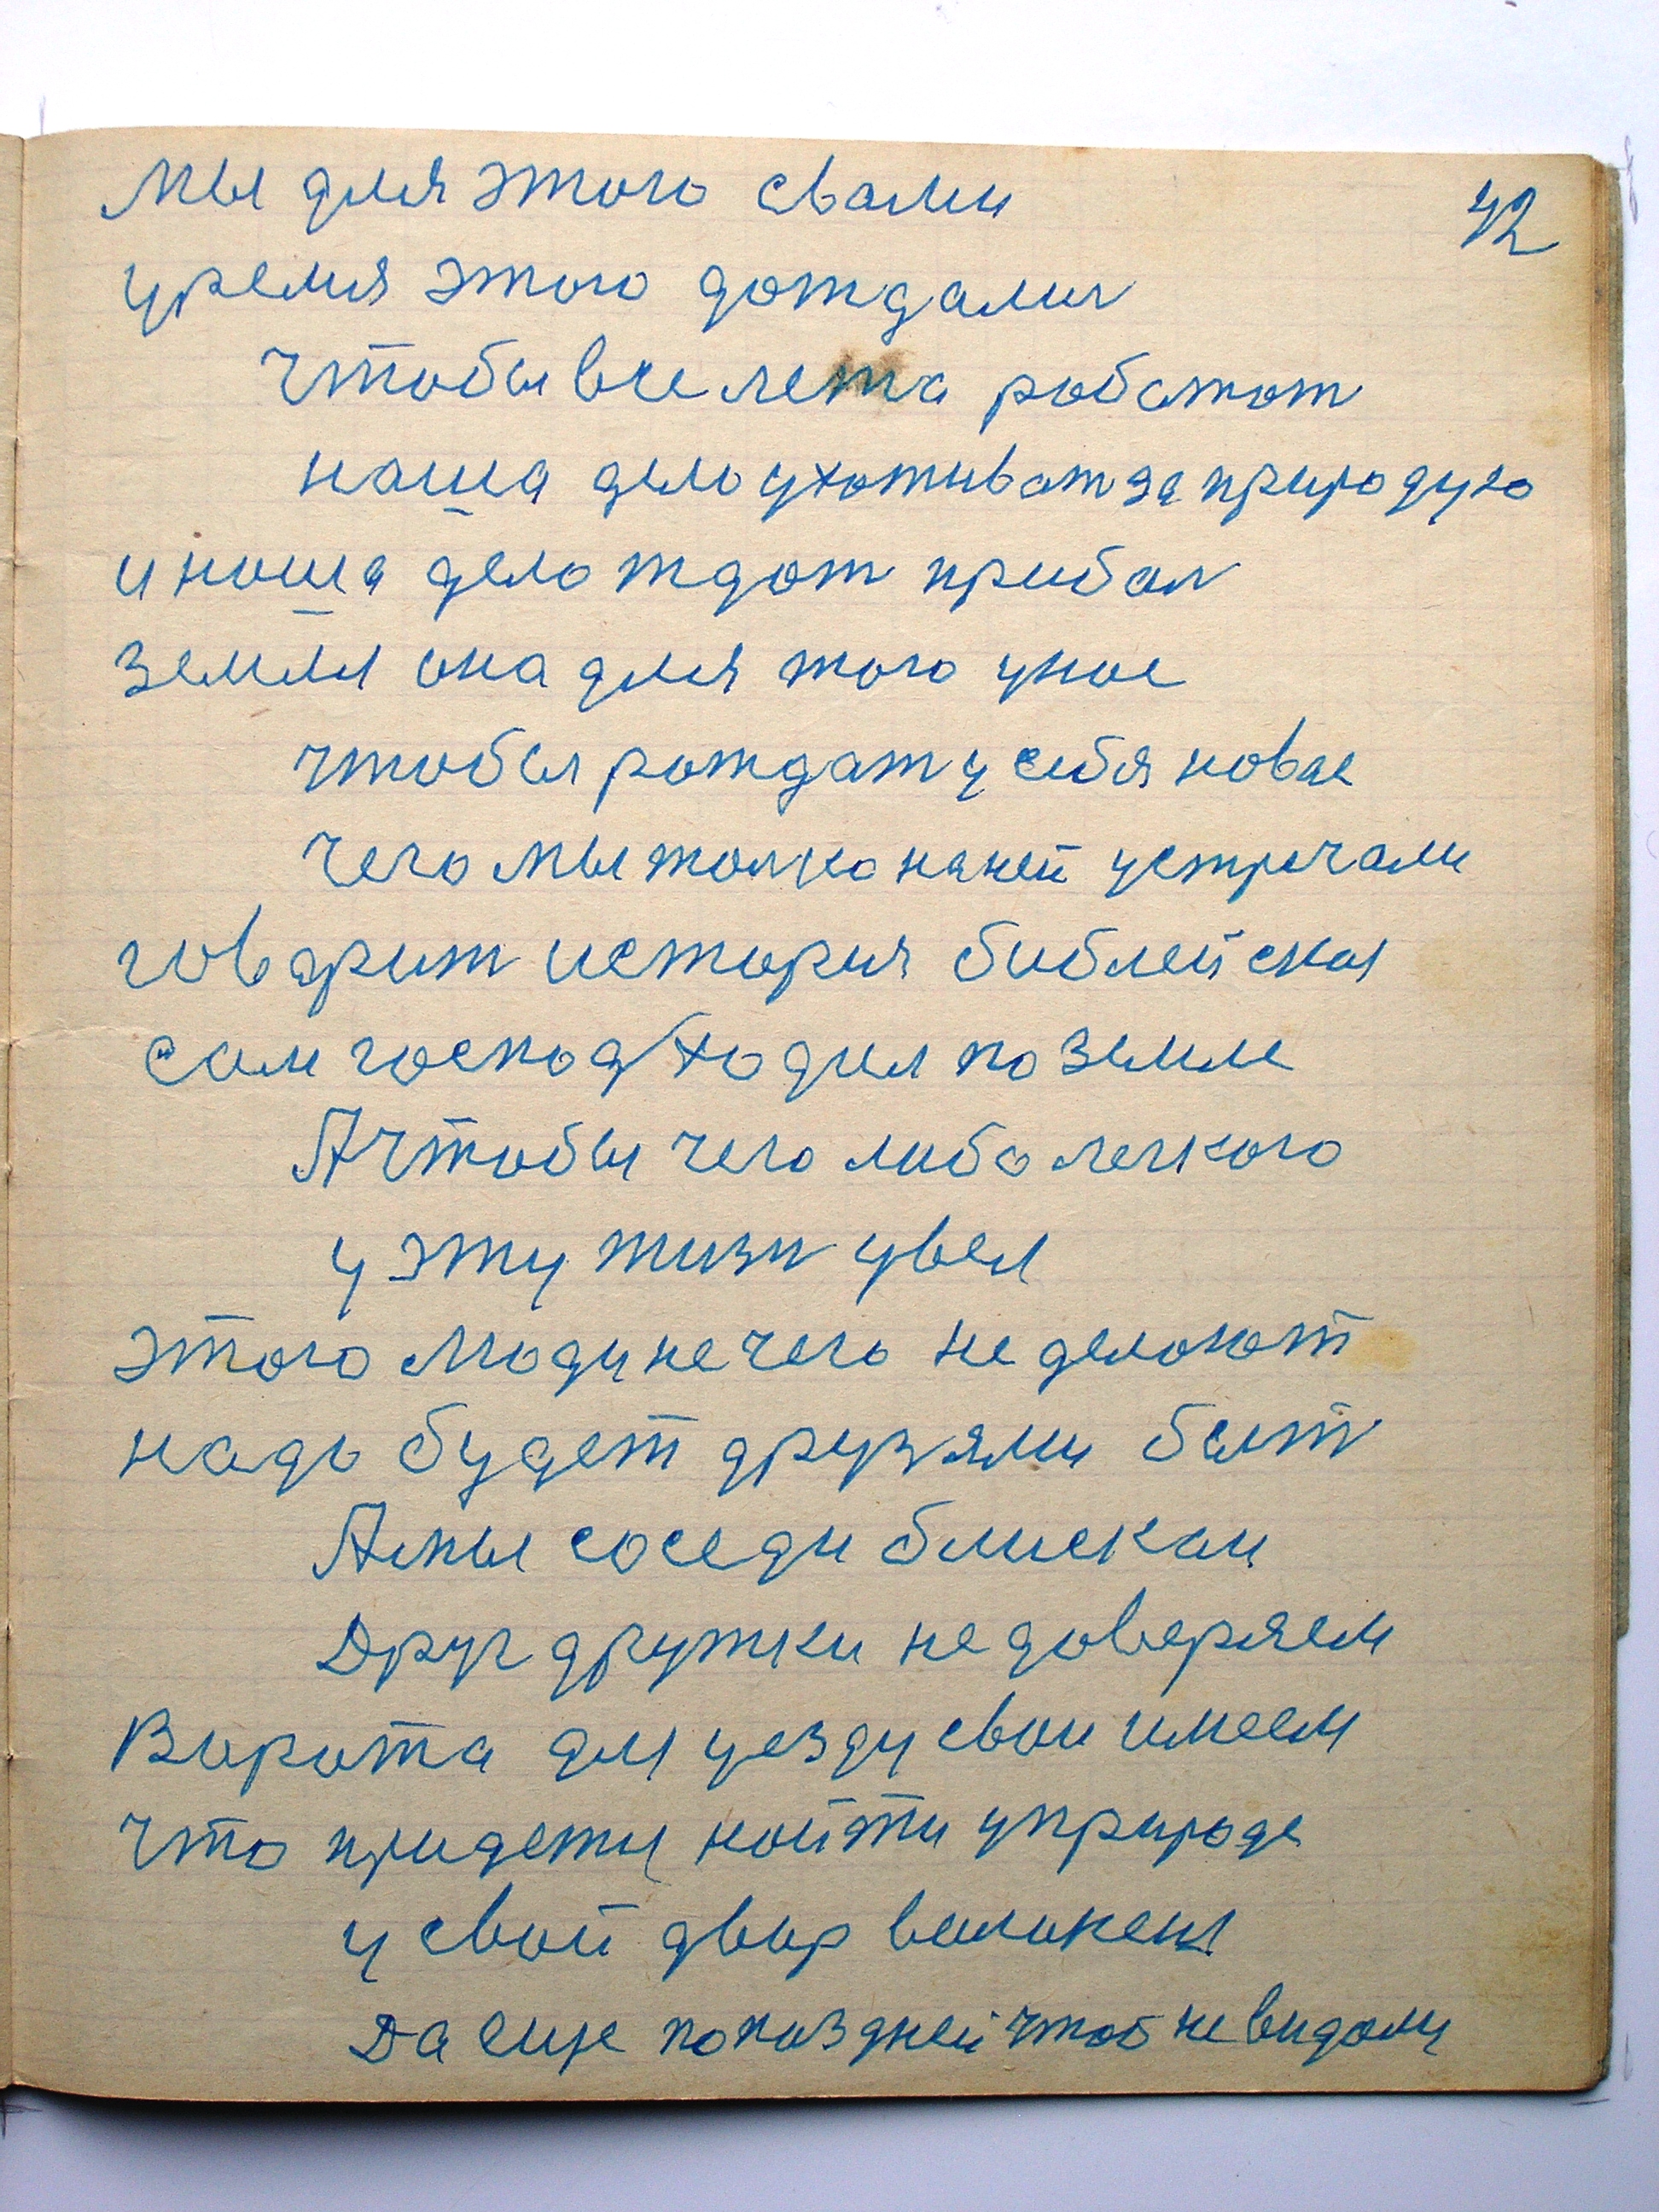 мы для этого свами
42
уремя этого дождалис
чтобы все лета работат
наша дело ухаживат за природую
и наша дело ждат прибал
земля она для того уное
чтобы рождат у себя новае
чего мы толко на ней устречали
говарит история библейская
сам господ ходил по земле
А чтобы чего либо легкого
у эту жизн увел
этого люди нечего не делают
надо будет друзями быт
А мы соседи блискаи
Друг дружки не доверяем
Ворота для уезду свои имеем
что придетц найти уприроде
у свой двор валикем
Да еще попаздней чтоб не видали